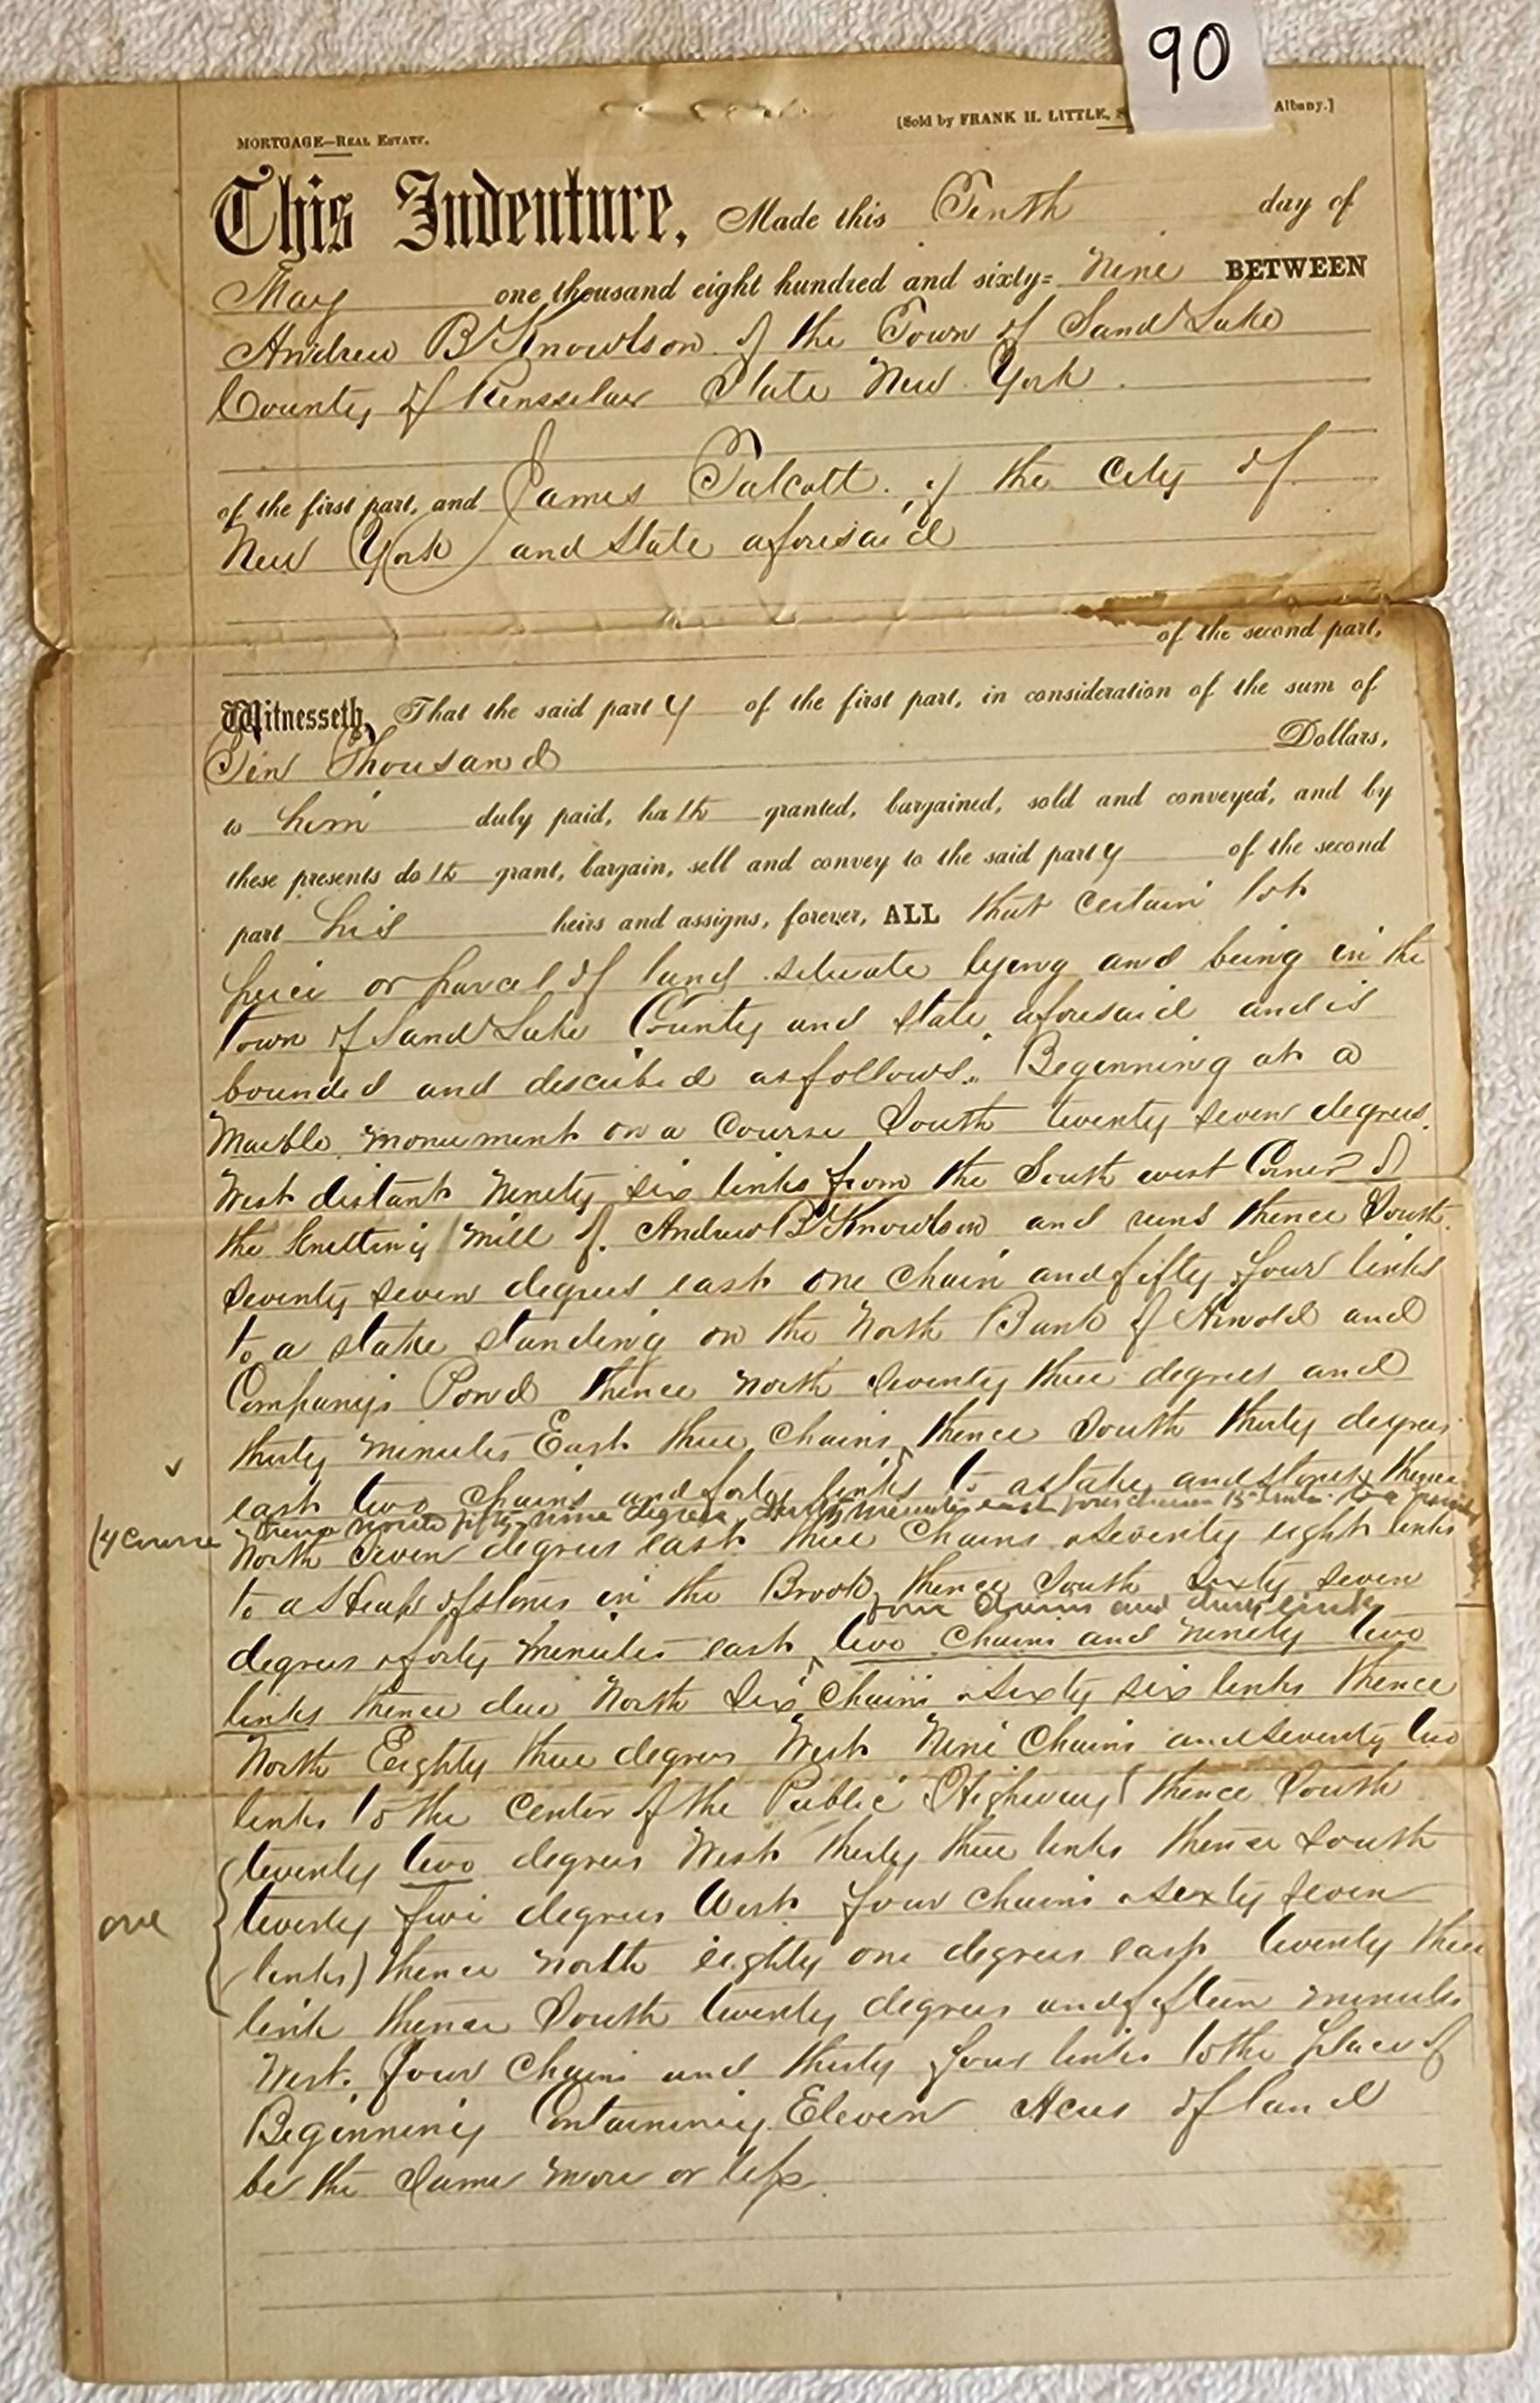 90
MORTGAGE—REAL ESTATE.
[Sold by FRANK H. LITTLE, Albany.]
This Indenture, Made this Tenth day of
May one thousand eight hundred and sixty= Nine BETWEEN
Andrew B Knowlson of the Town of Sand Lake
County of Rensselaer State New York.
of the first part, and James Talcott. of the City of
New York and State aforesaid
of the second part,
Witnesseth, That the said party of the first part, in consideration of the sum of
Ten Thousand Dollars,
to him duly paid, hath granted, bargained, sold and conveyed, and by
these presents doth grant, bargain, sell and convey to the said party of the second
part his heirs and assigns, forever, ALL that certain lot
peice or parcel of land situate lyeng and being in the
Town of Sand Lake County and State aforesaid and is
bounded and described as follows. Beginning at a
Marble monument on a Course South twenty seven degrees
West distant Ninety six links from the South west Corner of
the Knitting Mill of Andrew B Knowlson and runs thence South
Seventy seven degrees east one Chain and fifty four links
to a stake standing on the North Bank of Arnold and
Company's Pond thence North Seventy three degrees and
thirty minutes East three Chains thence South thirty degrees
east two chains and forty links to a stake and stones thence
thence North fifty nine degrees thirty minutes east four chains 15 links to a
(4 course North Seven degrees east three Chains & seventy eight links
to a Heap of stones in the Brook, thence South sixty seven
four chains and thirty links
degrees & forty minutes east two Chains and ninety two
links thence due North Six Chains & sixty six links thence
North Eighty three degrees West Nine Chains and seventy two
links to the center of the Public Highway (thence South
twenty two degrees West thirty three links thence South
one twenty five degrees West four chains & sixty seven
links) thence North eighty one degrees east twenty three
link thence South twenty degrees and fifteen minutes
West. four Chains and thirty four links to the place of
Beginning Containing Eleven Acres of land
be the Same more or less.